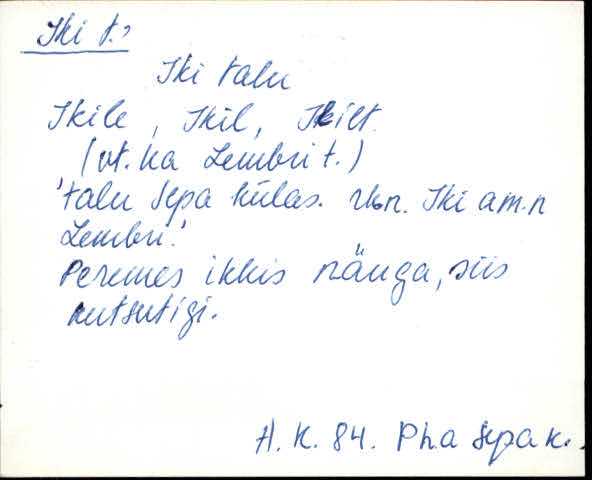 Iki t.
Iki talu
Ikile, Ikil, Ikilt.
(vt. ka Lembri t.)
'talu Sepa külas. rkn. Iki am.n
Lembri.'
Peremes ikkis näuga, siis
kutsutigi.
H. K. 84. Pha Sepa k.